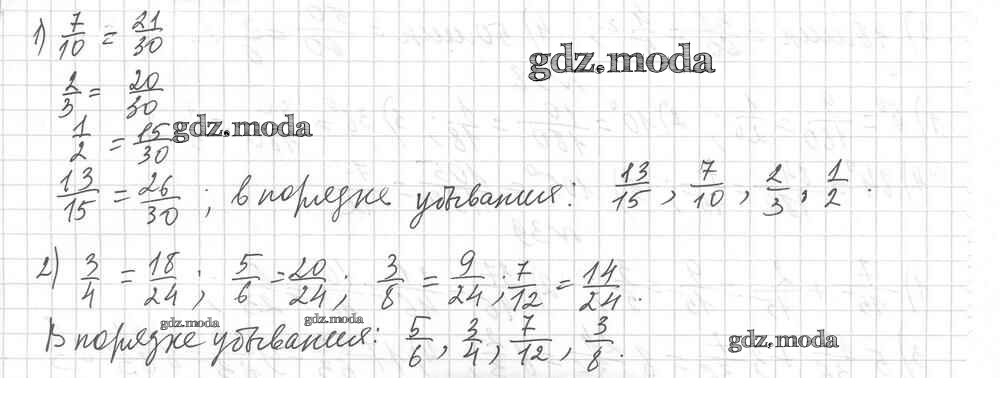 1) 7/10 = 21/30
gdz.moda
2/3 = 20/30
1/2 = 15/30 gdz.moda
13/15 = 26/30 ; в порядке убывания: 13/15, 7/10, 2/3, 1/2.
2) 3/4 = 18/24; 5/6 = 20/24; 3/8 = 9/24; 7/12 = 14/24.
gdz.moda gdz.moda
В порядке убывания: 5/6, 3/4, 7/12, 3/8.
gdz.moda